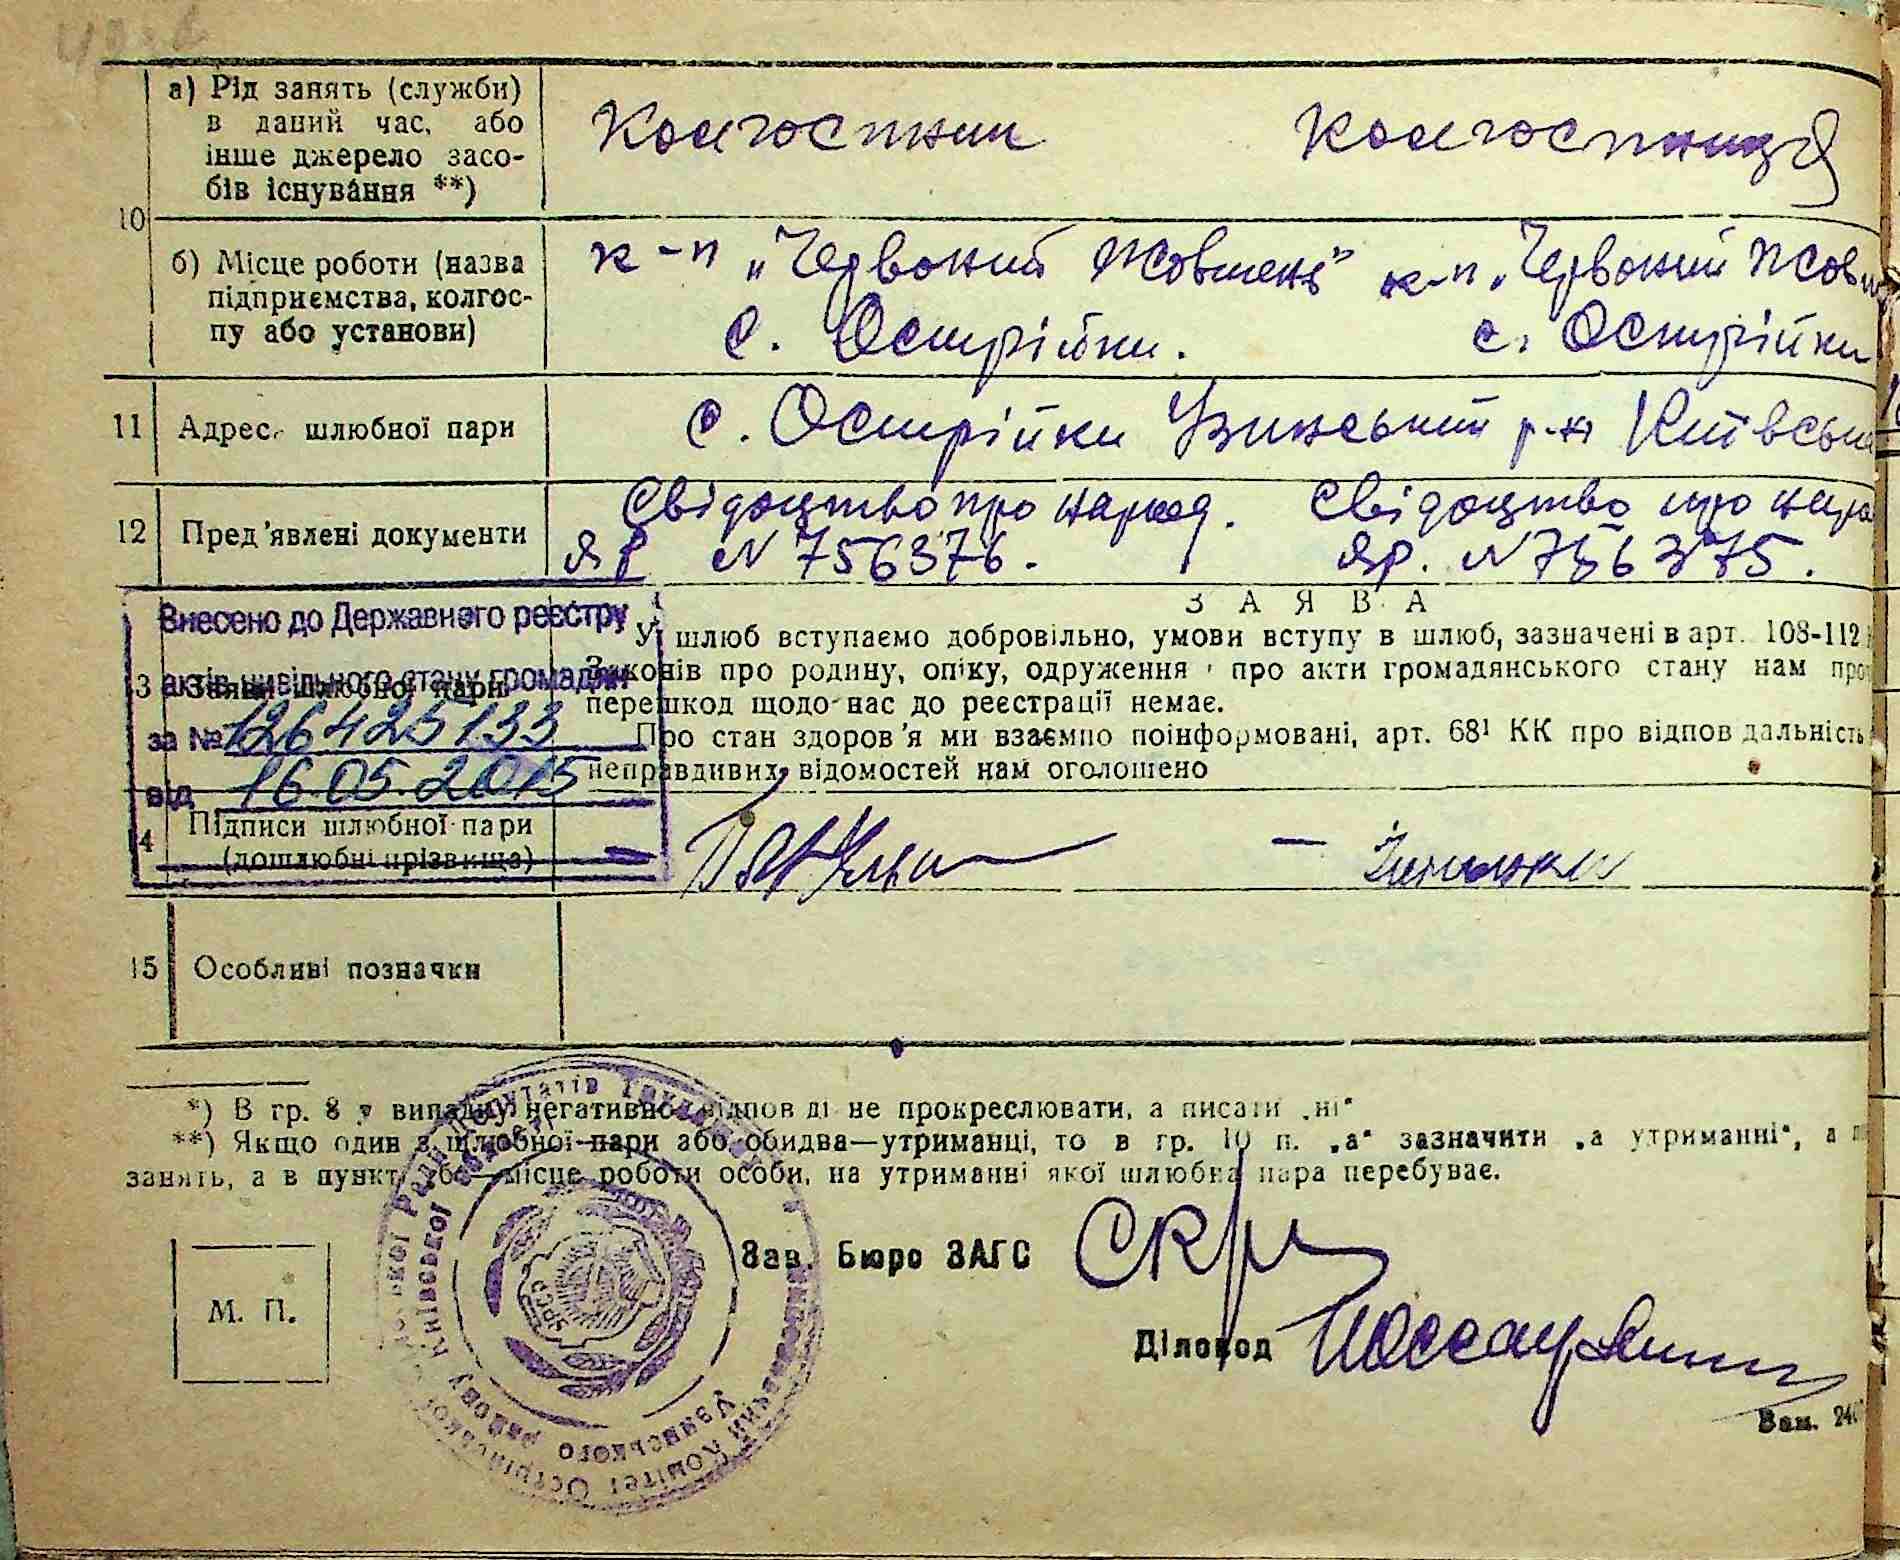 10
а) Рід занять (служби)
в даний час, або
інше джерело засо-
бів існування **)
Колгоспник
Колгоспниця
б) Місце роботи (назва
підприємства, колгос-
пу або установи)
к-п „Червоний Жовтень"
с. Острійки.
к-п „Червоний Жовт
с. Острійки
11
Адрес шлюбної пари
с. Острійки Узинський р-н Київськ
12
Пред'явлені документи
Свідоцтво про народ.
ЯР N 756376.
Свідоцтво про наро
ЯР. N 756375.
Внесено до Державного реєстру
актів цивільного стану громадян
за № 126425133
від 16.05.2015
3 Заяви шлюбної пари
З А Я В А
У шлюб вступаємо добровільно, умови вступу в шлюб, зазначені в арт. 108-112
Законів про родину, опіку, одруження і про акти громадянського стану нам про
перешкод щодо нас до реєстрації немає.
Про стан здоров'я ми взаємно поінформовані, арт. 68¹ КК про відповідальність
неправдивих відомостей нам оголошено
4
Підписи шлюбної пари
(дошлюбні прізвища)
15
Особливі позначки
*) В гр. 8 у випадку негативної відповіді не прокреслювати, а писати „ні"
**) Якщо один з шлюбної пари або обидва—утриманці, то в гр. 10 п. „а" зазначити „а утриманні", а
занять, а в пункті „б"—місце роботи особи, на утриманні якої шлюбна пара перебуває.
М. П.
Зав. Бюро ЗАГС
Діловод
Зам. 240
Київської
Узинського району
УРСР